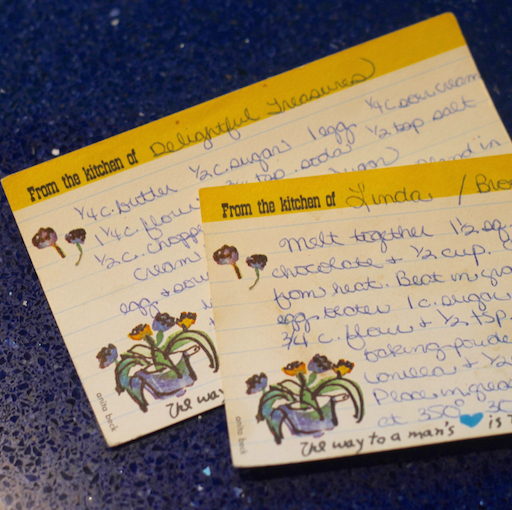 From the kitchen of Delightful Treasures
1/4 c. butter 1/2 c. sugar 1 egg 1/4 c. sour cream
1 1/4 c. flour tsp. soda 1/2 tsp salt
1/2 c. chopped
Cream
egg + sour
anita beck
The way
From the kitchen of Linda / Bro
Melt together 1 1/2 sq.
chocolate + 1/2 cup.
from heat. Beat in
egg beater 1 c. sugar
3/4 c. flour + 1/2 tsp.
baking powder
vanilla + 1/2
Place in grea
at 350° 30
anita beck
The way to a man's is